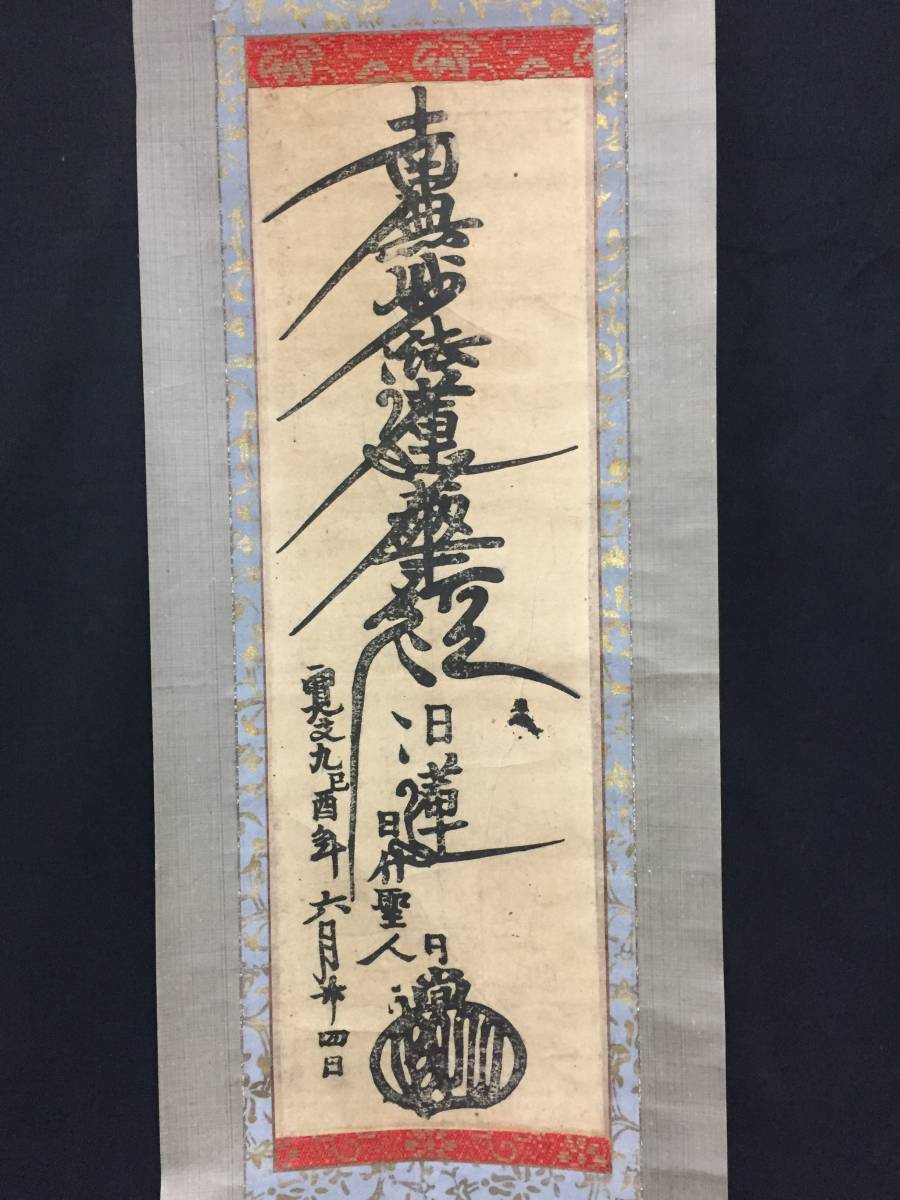 南無妙法蓮華経
日蓮
日什聖人
日
寛文九己酉年六月廿四日